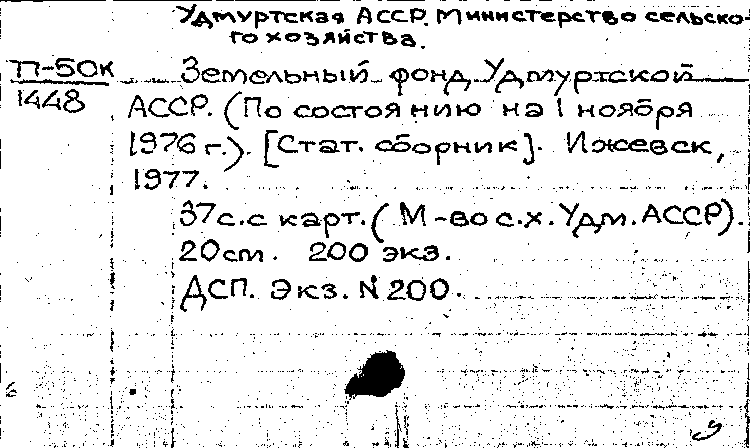 Удмуртская АССР. Министерство сельско-
го хозяйства.
П-50к
1448
Земельный фонд Удмуртской
АССР. (По состоянию на 1 ноября
1976 г.). [Стат. сборник]. Ижевск,
1977.
37с. с карт. (М-во с.х. Удм. АССР).
20см. 200 экз.
ДСП. Экз. N 200.
6